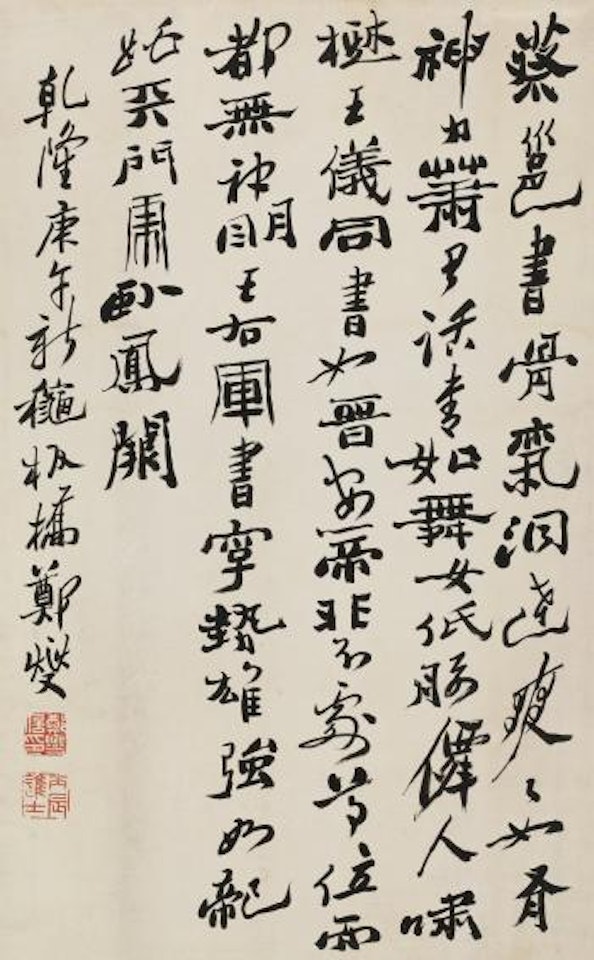 蔡邕書骨氣洞達爽爽如有
神力蕭思話書如舞女低腰僊人嘯
樹王儀同書如晉安帝非不處尊位而
都無神明王右軍書字勢雄強如龍
跳天門虎臥鳳闕
乾隆庚午新龝板橋鄭燮
丙辰進士